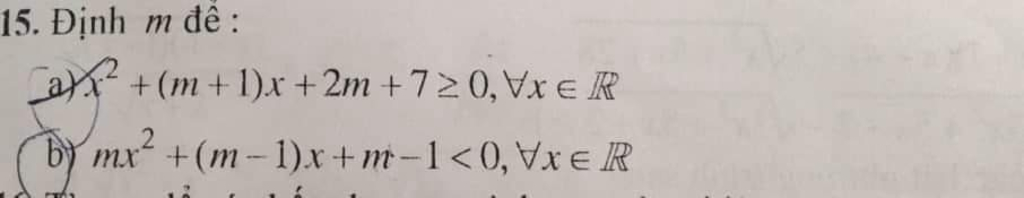 15. Định m để :
a) x² + (m + 1)x + 2m + 7 ≥ 0, ∀x ∈ ℝ
b) mx² + (m − 1)x + m − 1 < 0, ∀x ∈ ℝ